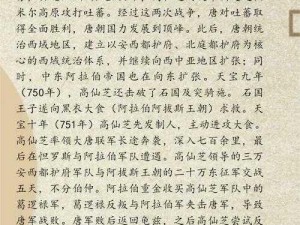 米尔高原攻打吐蕃。经过这两次战争，唐对吐蕃取
得全面胜利，唐朝国力发展到顶峰。此后，唐朝统
治西域地区，建立以安西都护府、北庭都护府为核
心的西域统治体系，并继续向西中亚地区扩张；同
时，中东阿拉伯帝国也在向东扩张。天宝九年
（750年），高仙芝还击破了石国及突骑施。 石国
王子遂向黑衣大食（阿拉伯阿拔斯王朝）求救。天
宝十年（751年）高仙芝先发制人，主动进攻大食。
高仙芝率领大唐联军长途奔袭，深入七百余里，最
后在怛罗斯与阿拉伯军队遭遇。高仙芝领导的三万
安西都护府军队与阿拔斯王朝的二十万东征军交战
五天，不分伯仲。阿拉伯重金收买高仙芝军队中的
葛逻禄军，葛逻禄军队与阿拉伯军夹击唐军，导致
唐军战败。唐军败后返回龟兹，之后高仙芝尝试反